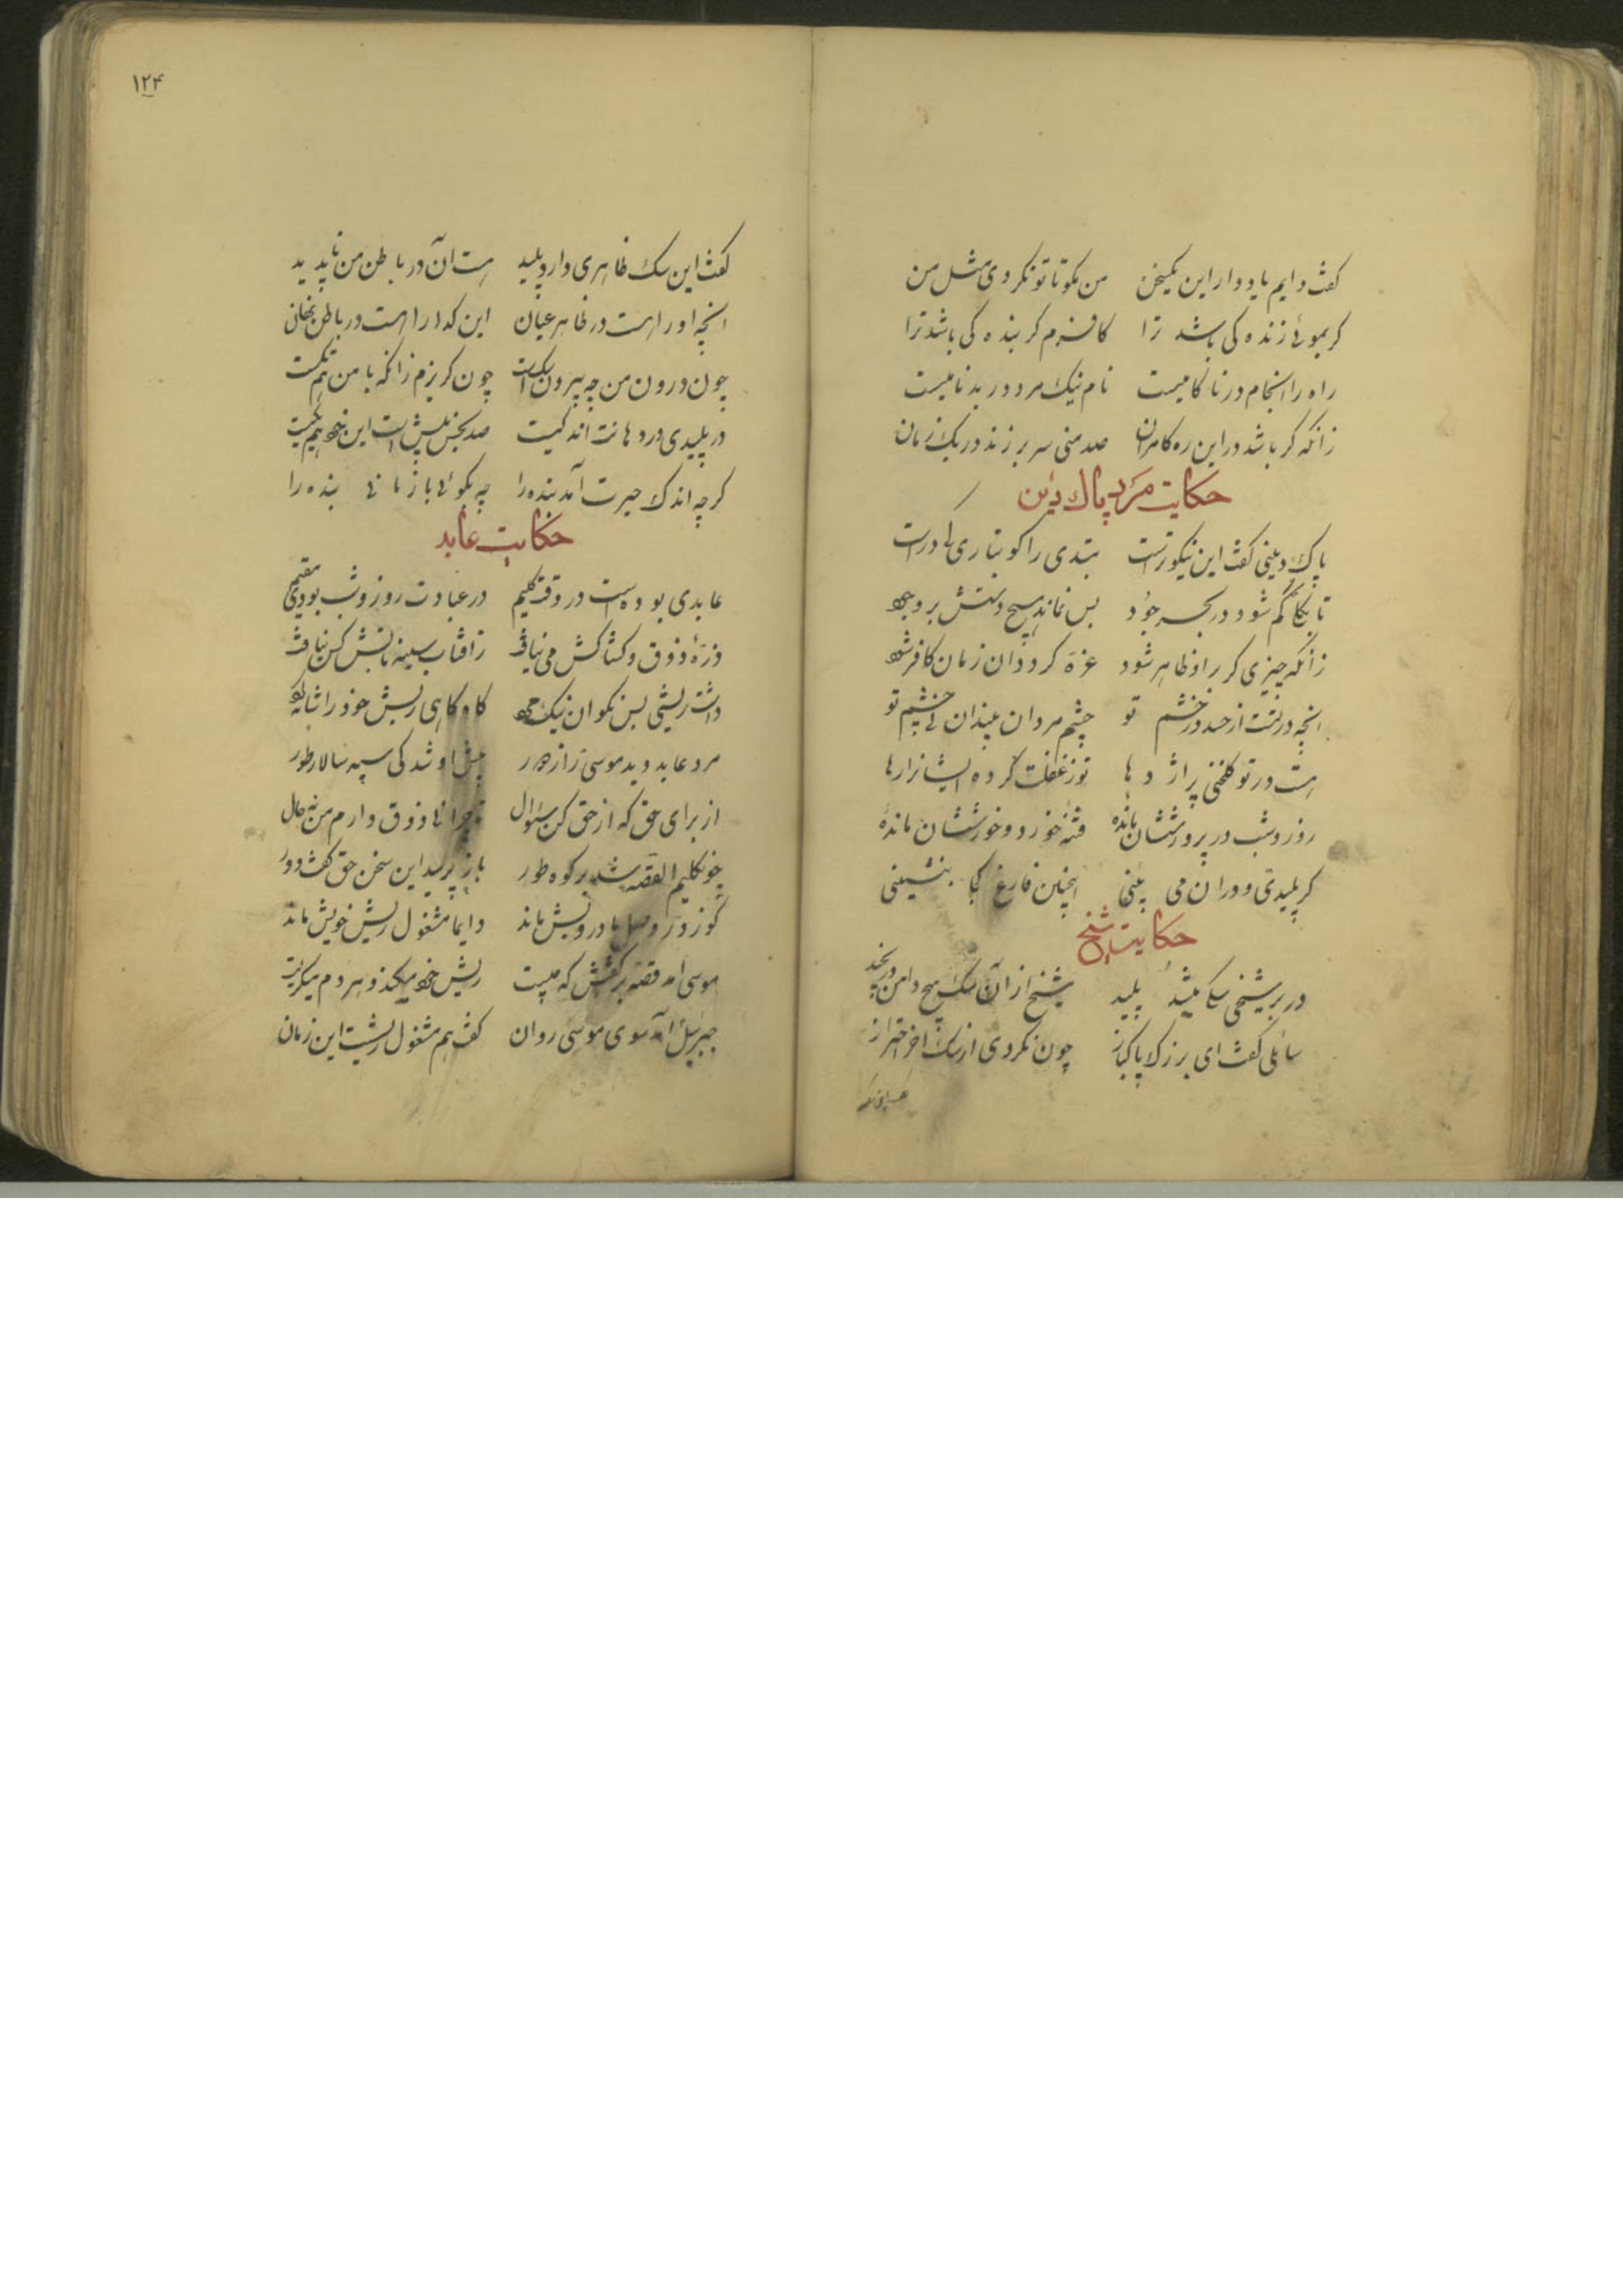 کفت دایم یاد دار این یکسخن من مکو تا تو نکردی مثل من
کر بموئی زنده کی باشد ترا کافرم کر بنده کی باشد ترا
راه را انجام در ناکامیست نام نیک مرد در بدنامیست
زانکه کر باشد در این ره کامران صد منی سر بر زند در یک زمان
حکایت مرد پاك دین
پاک دینی کفت این نیکوترست مبتدی را کو بتاریکی درست
تا بکلی کم شود در بحر جود پس نماند هیچ رشدش بر وجود
زانکه چیزی کر بر او ظاهر شود غره کردد آن زمان کافر شود
انچه در تست از حسد وز خشم تو چشم مردان بیند آن نی چشم تو
هست در تو کلخنی پر اژدها تو ز غفلت کرده ایشانرا رها
روز و شب در پرورششان مانده فتنه خورد و خورششان مانده
کر پلیدی درون می بینی اینچنین فارغ کجا بنشینی
حکایت شیخ
در بر شیخی سکی بنشد پلید شیخ از آن سک هیچ دامن در نچید
سائلی کفت ای بزرک پاکباز چون نکردی از سک آخر احتراز
۱۲۴
کفت این سک ظاهری دارد پلید هست آن در باطن من ناپدید
انچه او را هست در ظاهر عیان این کدا را هست در باطن نهان
چون درون من چه بیرون سکست چون کریزم زانکه با من هم تکست
در پلیدی درو هانت اندکیست صد نجس بیش است این خود هم یکیست
کرچه اندک حیرت آمد بنده را چه بکوئی باز مانی بنده را
حکایت عابد
عابدی بوده است در وقت کلیم در عبادت روز و شب بودی مقیم
ذرهٔ ذوق و کشاکش می نیافت ز آفتاب سینه تابش کن نیافت
داشت ریشی بس نکو آن نیک مرد کاه کاهی ریش خود را شانه کرد
مرد عابد دید موسی را ز دور پیش او شد کی سپه سالار طور
از برای حق که از حق کن سئوال تا چرا نی ذوق دارم من نه حال
چون کلیم القصه شد بر کوه طور باز پرسید این سخن حق کفت دور
کو ز دور وصل ما درویش ماند دایما مشغول ریش خویش ماند
موسی آمد قصه بر کفتش که چیست ریش خود میکند و هر دم میکریست
جبرئیل آمد سوی موسی روان کفت هم مشغول ریشست این زمان